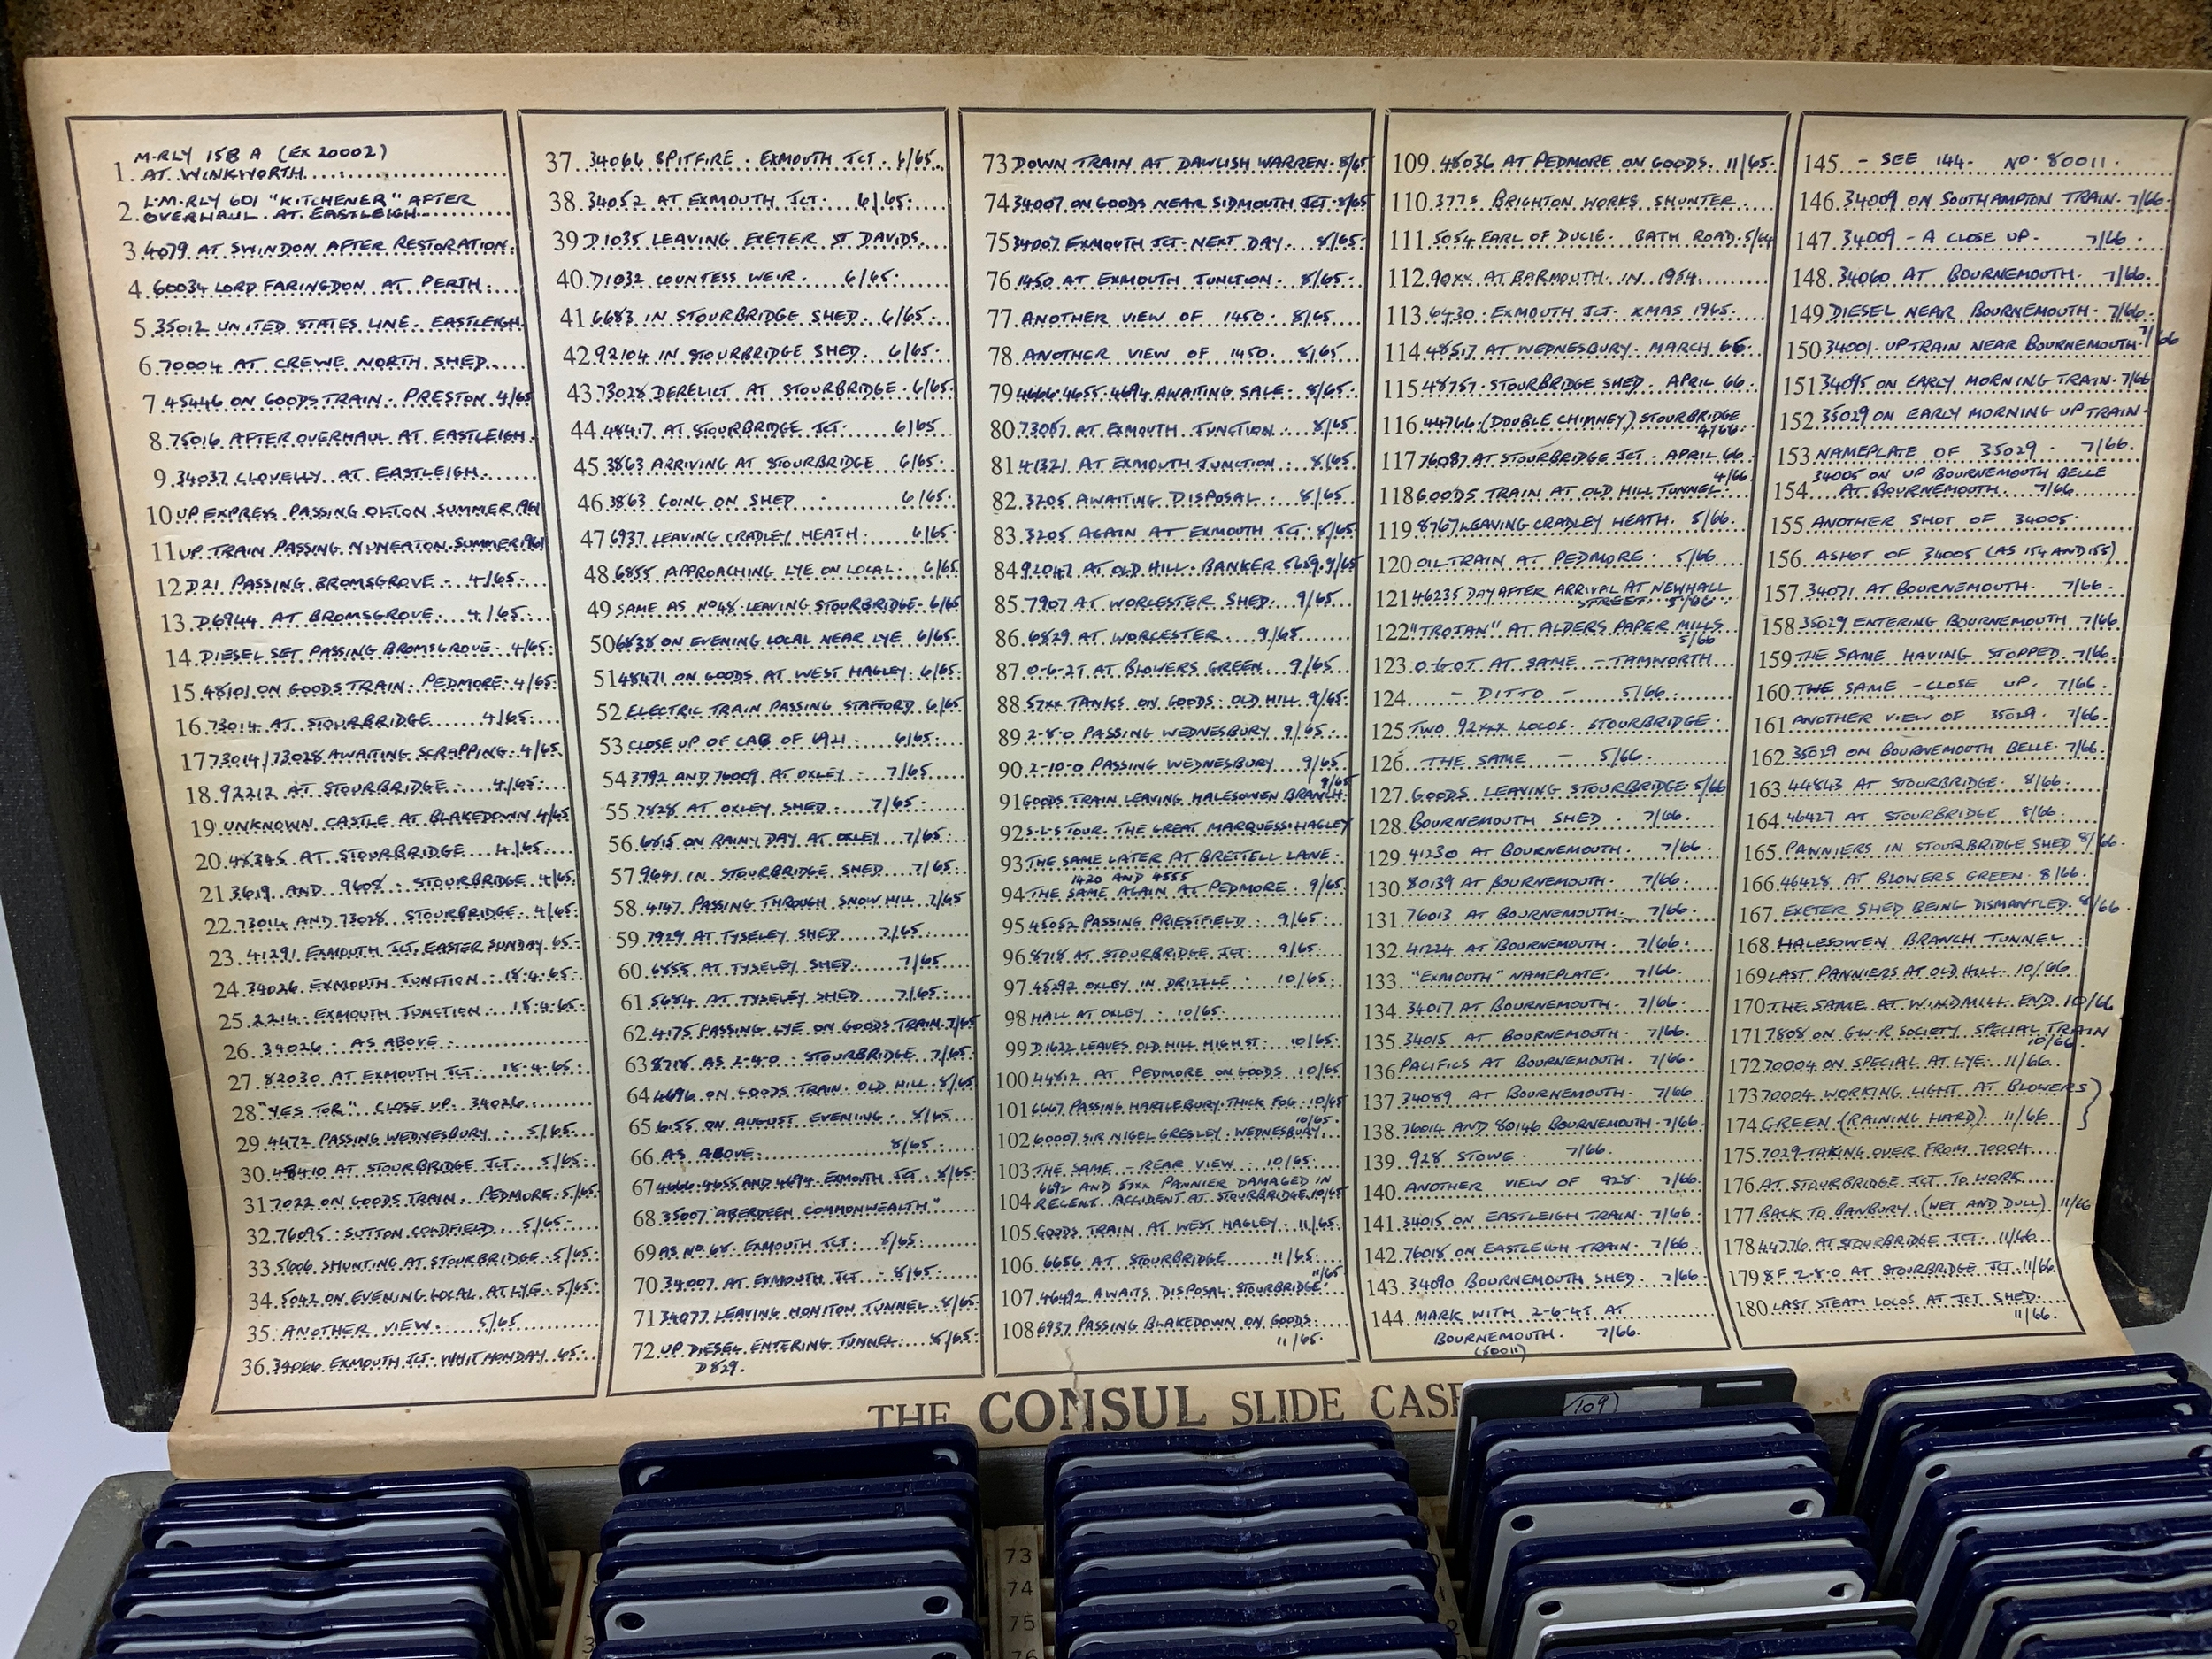 1. M-RLY 158 A (EX 20002)
AT WINKWORTH
2. L.M.RLY 601 "KITCHENER" AFTER
OVERHAUL AT EASTLEIGH
3. 4079 AT SWINDON AFTER RESTORATION.
4. 60034 LORD FARINGDON AT PERTH.
5. 35012 UNITED STATES LINE. EASTLEIGH
6. 70004 AT CREWE NORTH SHED
7. 45446 ON GOODS TRAIN. PRESTON 4/65
8. 75016 AFTER OVERHAUL AT EASTLEIGH
9. 34037 CLOVELLY AT EASTLEIGH.
10 UP EXPRESS PASSING OLTON SUMMER 1961
11 UP TRAIN PASSING NUNEATON SUMMER 1961
12 D21 PASSING BROMSGROVE. 4/65.
13. D6944 AT BROMSGROVE. 4/65.
14. DIESEL SET PASSING BROMSGROVE. 4/65.
15. 48101 ON GOODS TRAIN. PEDMORE. 4/65.
16. 73014 AT STOURBRIDGE 4/65.
17 73014/73028 AWAITING SCRAPPING. 4/65
18. 92212 AT STOURBRIDGE. 4/65.
19 UNKNOWN CASTLE AT BLAKEDOWN 4/65
20. AT STOURBRIDGE 4/65.
21 3619 AND 9608. STOURBRIDGE 4/65.
22. 73014 AND 73028. STOURBRIDGE. 4/65.
23. 41291 EXMOUTH JCT. EASTER SUNDAY 65.
24. 34026 EXMOUTH JUNCTION. 18.4.65.
25. 2214. EXMOUTH JUNCTION. 18.4.65.
26. 34026. AS ABOVE.
27. 82030 AT EXMOUTH JCT. 18.4.65.
28 "YES TOR" CLOSE UP. 34026.
29. 4472 PASSING WEDNESBURY. 5/65.
30. 48410 AT STOURBRIDGE JCT. 5/65.
31 7022 ON GOODS TRAIN. PEDMORE. 5/65.
32. 76095. SUTTON COLDFIELD. 5/65.
33. 5606 SHUNTING AT STOURBRIDGE. 5/65.
34. 5042 ON EVENING LOCAL AT LYE. 5/65.
35. ANOTHER VIEW. 5/65
36. 34066 EXMOUTH JCT. WHIT MONDAY 65.
37. 34066 SPITFIRE. EXMOUTH JCT. 6/65.
38. 34052 AT EXMOUTH JCT. 6/65.
39 D1035 LEAVING EXETER ST DAVIDS.
40. D1032 COUNTESS WEIR. 6/65.
41 6683 IN STOURBRIDGE SHED. 6/65.
42. 92104 IN STOURBRIDGE SHED. 6/65.
43 73028 DERELICT AT STOURBRIDGE. 6/65.
44. 48417 AT STOURBRIDGE JCT. 6/65
45. 3863 ARRIVING AT STOURBRIDGE 6/65.
46 3863 GOING ON SHED. 6/65.
47 6937 LEAVING CRADLEY HEATH. 6/65.
48. 6855 APPROACHING LYE ON LOCAL. 6/65
49 SAME AS No48. LEAVING STOURBRIDGE. 6/65
50 6838 ON EVENING LOCAL NEAR LYE 6/65.
51 48471 ON GOODS AT WEST HAGLEY. 6/65.
52 ELECTRIC TRAIN PASSING STAFFORD 6/65
53 CLOSE UP OF CAB OF 6/65.
54 3792 AND 76009 AT OXLEY. 7/65
55 7828 AT OXLEY SHED. 7/65.
56. 6815 ON RAINY DAY AT OXLEY 7/65.
57 9641 IN STOURBRIDGE SHED 7/65.
58. 4147 PASSING THROUGH SNOW HILL 7/65
59. 7929 AT TYSELEY SHED 7/65.
60. 6855 AT TYSELEY SHED. 7/65
61. 5684 AT TYSELEY SHED 7/65.
62 4175 PASSING LYE ON GOODS TRAIN. 7/65
63 8718 AS 2-4-0. STOURBRIDGE 7/65.
64 4696 ON GOODS TRAIN. OLD HILL. 8/65
65 ON AUGUST EVENING. 8/65
66 AS ABOVE. 8/65.
67 4666.4655 AND 4694. EXMOUTH JCT. 8/65.
68. 35007 "ABERDEEN COMMONWEALTH"
69 AS No 68. EXMOUTH JCT. 8/65.
70 34007 AT EXMOUTH JCT. 8/65.
71 34077 LEAVING HONITON TUNNEL 8/65
72 UP DIESEL ENTERING TUNNEL. 8/65.
D829.
73 DOWN TRAIN AT DAWLISH WARREN. 8/65
74 34007 ON GOODS NEAR SIDMOUTH JCT. 8/65
75 34007 EXMOUTH JCT. NEXT DAY. 8/65.
76 1450 AT EXMOUTH JUNCTION. 8/65.
77 ANOTHER VIEW OF 1450. 8/65
78. ANOTHER VIEW OF 1450. 8/65
79 4666.4655.4694 AWAITING SALE. 8/65.
80 73087 AT EXMOUTH JUNCTION. 8/65.
81 41321 AT EXMOUTH JUNCTION. 8/65.
82. 3205 AWAITING DISPOSAL. 8/65.
83. 3205 AGAIN AT EXMOUTH JCT. 8/65.
84 92047 AT OLD HILL. BANKER 5659. 9/65
85. 7907 AT WORCESTER SHED. 9/65
86. 6829 AT WORCESTER. 9/65
87 0-6-2T AT BLOWERS GREEN. 9/65
88 57xx TANKS ON GOODS. OLD HILL 9/65.
89 2-8-0 PASSING WEDNESBURY 9/65.
90. 2-10-0 PASSING WEDNESBURY 9/65.
91 GOODS TRAIN LEAVING HALESOWEN BRANCH. 9/65
92 S-L-S TOUR. THE GREAT MARQUESS. HAGLEY
93 THE SAME LATER AT BRETTELL LANE.
94 1420 AND 4555
THE SAME AGAIN AT PEDMORE. 9/65.
95 45052 PASSING PRIESTFIELD. 9/65.
96 8718 AT STOURBRIDGE JCT. 9/65.
97. 45292 OXLEY IN DRIZZLE. 10/65.
98 HALL AT OXLEY. 10/65.
99 D1622 LEAVES OLD HILL HIGH ST. 10/65.
100 44812 AT PEDMORE ON GOODS 10/65
101 6667 PASSING HARTLEBURY. THICK FOG. 10/65
102 60007 SIR NIGEL GRESLEY. WEDNESBURY. 10/65.
103 THE SAME - REAR VIEW. 10/65.
104 6692 AND 57xx PANNIER DAMAGED IN
RECENT ACCIDENT AT STOURBRIDGE 10/65
105 GOODS TRAIN AT WEST HAGLEY. 11/65.
106. 6656 AT STOURBRIDGE 11/65.
107. 46492 AWAITS DISPOSAL. STOURBRIDGE. 11/65
108 6937 PASSING BLAKEDOWN ON GOODS.
11/65.
109. 48036 AT PEDMORE ON GOODS. 11/65.
110. 377s BRIGHTON WORKS SHUNTER
111. 5054 EARL OF DUCIE. BATH ROAD. 5/64
112. 90xx AT BARMOUTH. IN 1954.
113. 6430. EXMOUTH JCT. XMAS 1965.
114. 48517 AT WEDNESBURY. MARCH 66.
115 48757. STOURBRIDGE SHED. APRIL 66.
116 44766 (DOUBLE CHIMNEY) STOURBRIDGE
4/66.
117 76087 AT STOURBRIDGE JCT. APRIL 66.
118 GOODS TRAIN AT OLD HILL TUNNEL. 4/66
119 8767 LEAVING CRADLEY HEATH. 5/66.
120 OIL TRAIN AT PEDMORE. 5/66
121 46235 DAY AFTER ARRIVAL AT NEWHALL
STREET. 5/66
122 "TROJAN" AT ALDERS PAPER MILLS
5/66
123. 0-6-0T AT SAME - TAMWORTH
124. - DITTO - 5/66.
125 TWO 92xxx LOCOS. STOURBRIDGE.
126. THE SAME - 5/66.
127. GOODS LEAVING STOURBRIDGE. 5/66
128 BOURNEMOUTH SHED. 7/66.
129. 41230 AT BOURNEMOUTH. 7/66.
130. 80139 AT BOURNEMOUTH. 7/66.
131. 76013 AT BOURNEMOUTH. 7/66.
132. 41224 AT BOURNEMOUTH. 7/66.
133. "EXMOUTH" NAMEPLATE. 7/66.
134. 34017 AT BOURNEMOUTH. 7/66.
135. 34015 AT BOURNEMOUTH. 7/66.
136 PACIFICS AT BOURNEMOUTH. 7/66.
137 34089 AT BOURNEMOUTH. 7/66
138. 76014 AND 80146 BOURNEMOUTH. 7/66.
139. 928 STOWE. 7/66.
140. ANOTHER VIEW OF 928. 7/66.
141. 34015 ON EASTLEIGH TRAIN. 7/66.
142. 76018 ON EASTLEIGH TRAIN. 7/66.
143. 34090 BOURNEMOUTH SHED. 7/66.
144. MARK WITH 2-6-4T AT
BOURNEMOUTH. 7/66.
(80011)
145. - SEE 144. No. 80011.
146. 34009 ON SOUTHAMPTON TRAIN. 7/66.
147. 34009 - A CLOSE UP. 7/66.
148. 34060 AT BOURNEMOUTH. 7/66.
149 DIESEL NEAR BOURNEMOUTH. 7/66.
150 34001. UP TRAIN NEAR BOURNEMOUTH. 7/66
151 34095 ON EARLY MORNING TRAIN. 7/66
152. 35029 ON EARLY MORNING UP TRAIN.
153 NAMEPLATE OF 35029. 7/66.
154. 34005 ON UP BOURNEMOUTH BELLE
AT BOURNEMOUTH. 7/66.
155 ANOTHER SHOT OF 34005.
156. A SHOT OF 34005 (AS 154 AND 155)
157. 34071 AT BOURNEMOUTH. 7/66.
158 35029 ENTERING BOURNEMOUTH 7/66
159 THE SAME HAVING STOPPED. 7/66.
160. THE SAME - CLOSE UP. 7/66.
161 ANOTHER VIEW OF 35029. 7/66.
162 35029 ON BOURNEMOUTH BELLE. 7/66.
163 44843 AT STOURBRIDGE. 8/66.
164. 46427 AT STOURBRIDGE 8/66.
165. PANNIERS IN STOURBRIDGE SHED 8/66.
166. 46428 AT BLOWERS GREEN. 8/66.
167. EXETER SHED BEING DISMANTLED. 8/66
168. HALESOWEN BRANCH TUNNEL
169 LAST PANNIERS AT OLD HILL. 10/66
170 THE SAME AT WINDMILL END 10/66
171 7808 ON GW.R SOCIETY SPECIAL TRAIN
10/66
172 70004 ON SPECIAL AT LYE. 11/66.
173 70004 WORKING LIGHT AT BLOWERS
174 GREEN (RAINING HARD). 11/66
175 7029 TAKING OVER FROM 70004
176 AT STOURBRIDGE JCT TO WORK
177 BACK TO BANBURY. (WET AND DULL) 11/66
178 44776 AT STOURBRIDGE JCT. 11/66.
179 8F 2-8-0 AT STOURBRIDGE JCT. 11/66
180 LAST STEAM LOCOS AT JCT SHED.
11/66.
THE CONSUL SLIDE CASE
109
73
74
75
76